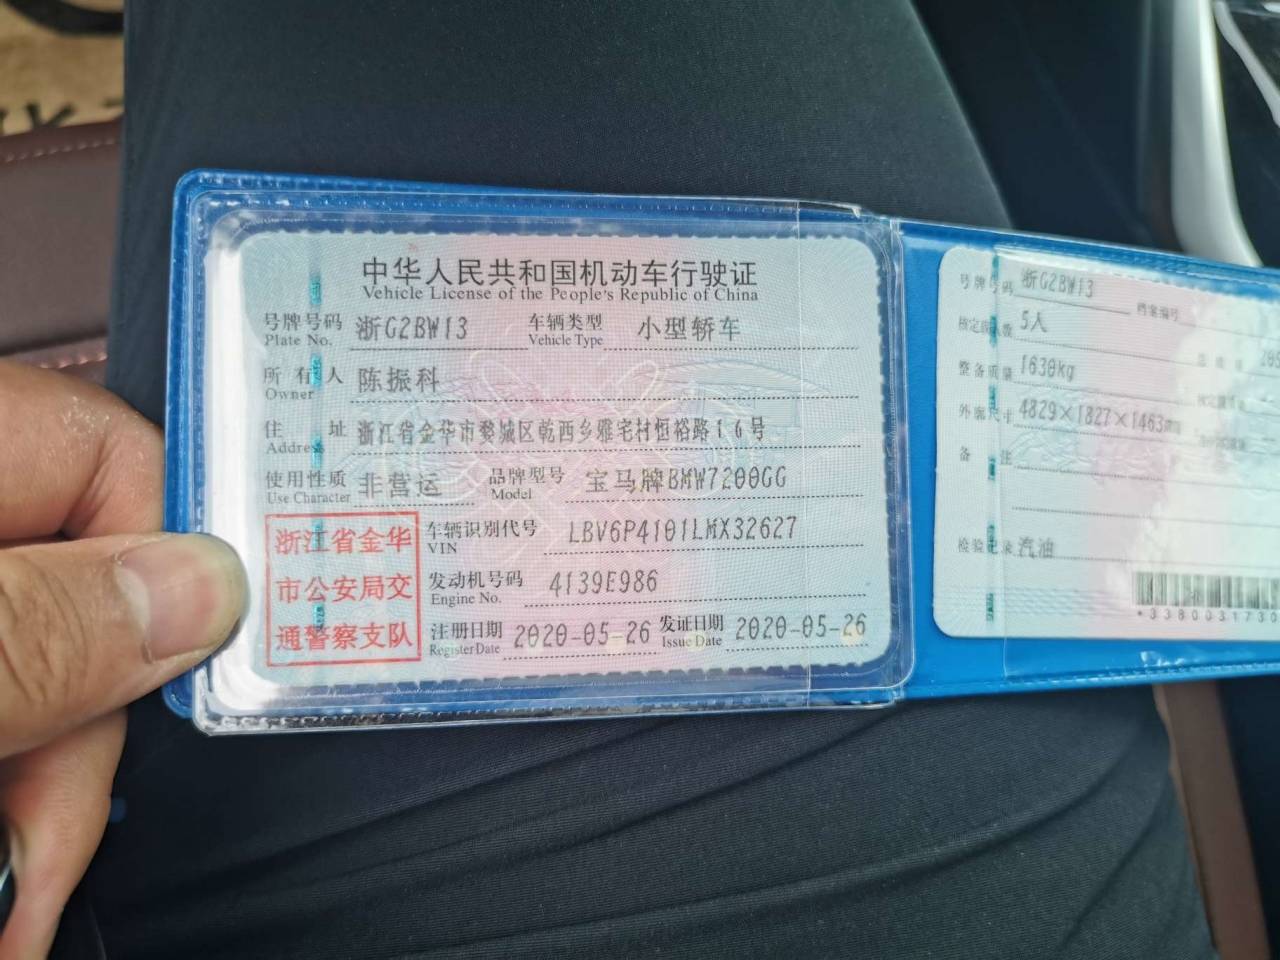 中华人民共和国机动车行驶证
Vehicle License of the People's Republic of China
号牌号码 浙G2BW13 车辆类型 小型轿车
Plate No. Vehicle Type
所有人 陈振科
Owner
住址 浙江省金华市婺城区乾西乡雅宅村恒裕路16号
Address
使用性质 非营运 品牌型号 宝马牌BMW7200GG
Use Character Model
浙江省金华
市公安局交
通警察支队
车辆识别代号 LBV6P4101LMX32627
VIN
发动机号码 4139E986
Engine No.
注册日期 2020-05-26 发证日期 2020-05-26
Register Date Issue Date
号牌号码 浙G2BW13 档案编号
核定载人数 5人
整备质量 1630kg
外廓尺寸 4829×1827×1463mm
备注
检验记录 汽油
*3380031730